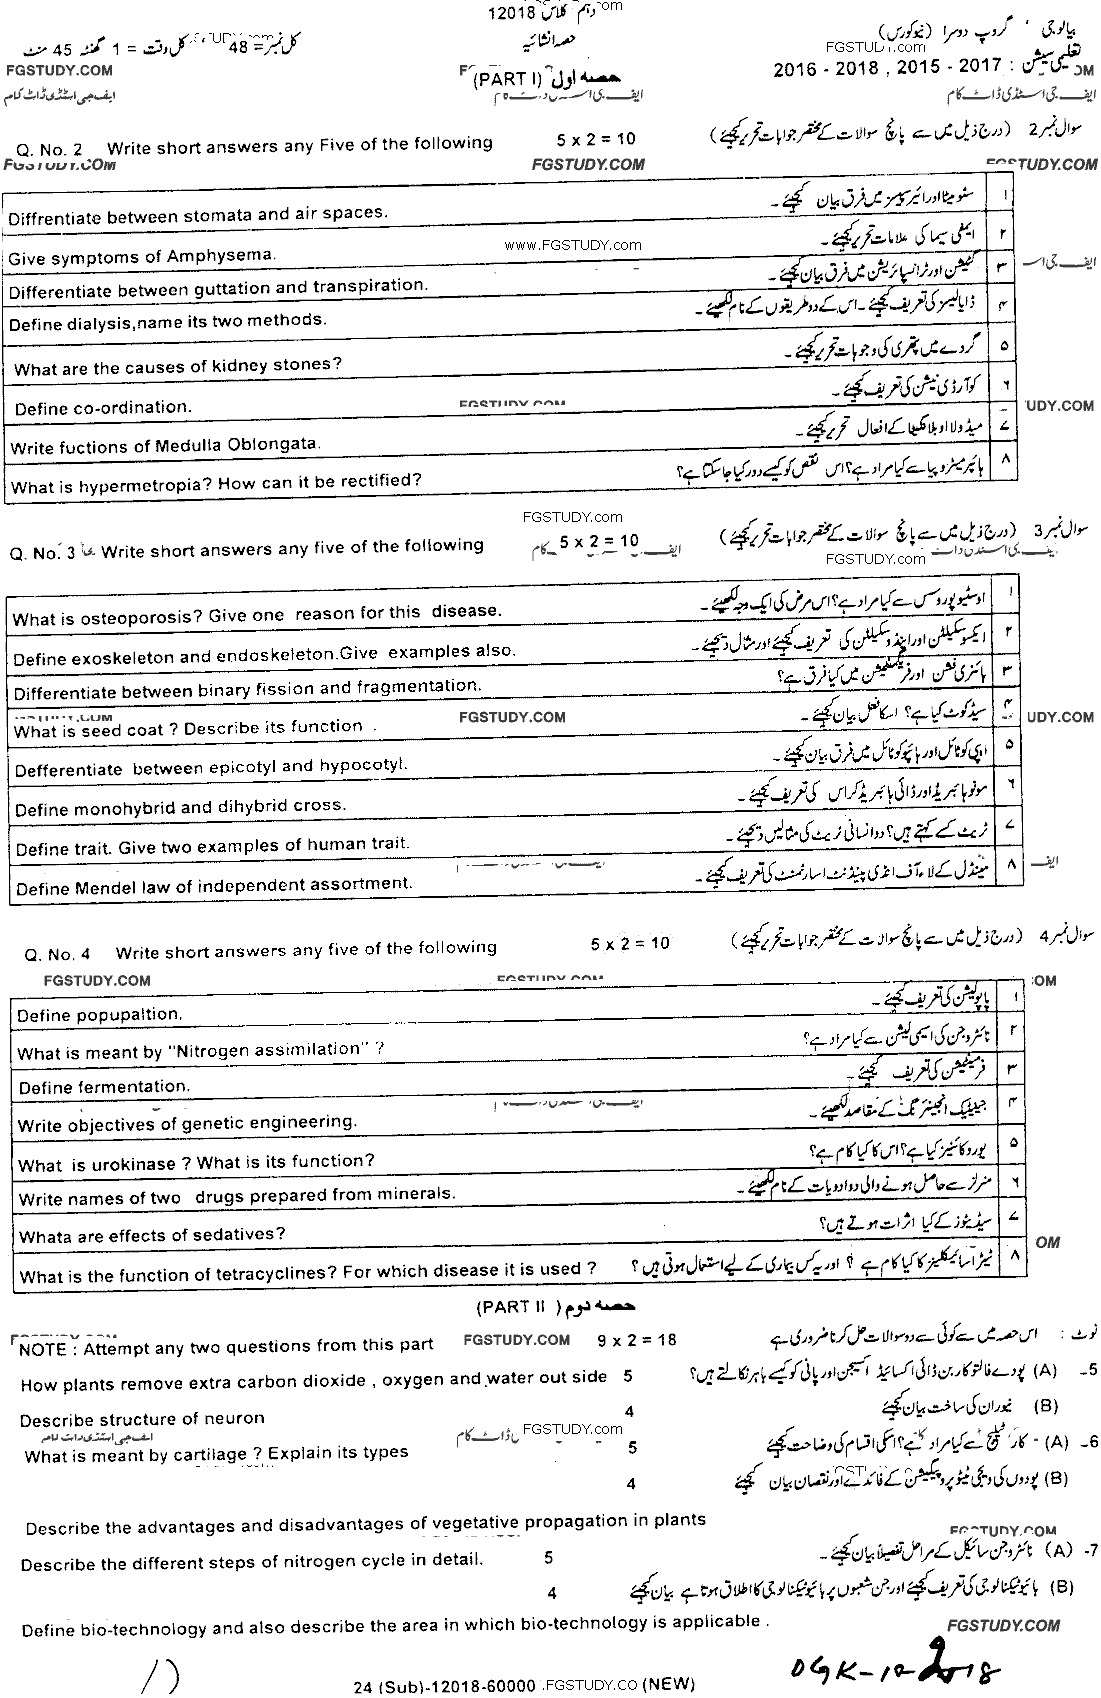 دہم کلاس 12018
بیالوجی ، گروپ دوسرا (نیوکورس)
حصہ انشائیہ
کل نمبر = 48 کل وقت = 1 گھنٹہ 45 منٹ
تعلیمی سیشن : 2017 - 2015 , 2018 - 2016
FGSTUDY.COM
FGSTUDY.com
حصہ اول (PART I)
ایف جی اسٹڈی ڈاٹ کام
ایف جی اسٹڈی ڈاٹ کام
Q. No. 2 Write short answers any Five of the following 5 x 2 = 10 سوال نمبر 2 (درج ذیل میں سے پانچ سوالات کے مختصر جوابات تحریر کیجئیے)
FGSTUDY.COM FGSTUDY.COM FGSTUDY.COM
Diffrentiate between stomata and air spaces. سٹومیٹا اور ائیر سپیسز میں فرق بیان کیجئیے۔ ۱
Give symptoms of Amphysema. ایمفی سیما کی علامات تحریر کیجئیے۔ ۲
www.FGSTUDY.com
Differentiate between guttation and transpiration. گٹیشن اور ٹرانسپائریشن میں فرق بیان کیجئیے۔ ۳
Define dialysis,name its two methods. ڈایالیسز کی تعریف کیجئیے۔ اس کے دو طریقوں کے نام لکھیئے۔ ۴
What are the causes of kidney stones? گردے میں پتھری کی وجوہات تحریر کیجئیے۔ ۵
Define co-ordination. کوآرڈی نیشن کی تعریف کیجئیے۔ ۶
FGSTUDY.COM UDY.COM
Write fuctions of Medulla Oblongata. میڈولا اوبلانگیٹا کے افعال تحریر کیجئیے۔ ۷
What is hypermetropia? How can it be rectified? ہائپر میٹروپیا سے کیا مراد ہے؟ اس نقص کو کیسے دور کیا جا سکتا ہے؟ ۸
FGSTUDY.com
Q. No. 3 Write short answers any five of the following 5 x 2 = 10 سوال نمبر 3 (درج ذیل میں سے پانچ سوالات کے مختصر جوابات تحریر کیجئیے)
FGSTUDY.com
What is osteoporosis? Give one reason for this disease. اوسٹیوپوروسس سے کیا مراد ہے؟ اس مرض کی ایک وجہ لکھیئے۔ ۱
Define exoskeleton and endoskeleton.Give examples also. ایکسوسکیلٹن اور اینڈوسکیلٹن کی تعریف کیجئیے اور مثال دیجئیے۔ ۲
Differentiate between binary fission and fragmentation. بائنری فشن اور فریگمنٹیشن میں کیا فرق ہے؟ ۳
FGSTUDY.COM UDY.COM
What is seed coat ? Describe its function . سیڈ کوٹ کیا ہے؟ اسکا فعل بیان کیجئیے۔ ۴
Defferentiate between epicotyl and hypocotyl. اپی کوٹائل اور ہائپوکوٹائل میں فرق بیان کیجئیے۔ ۵
Define monohybrid and dihybrid cross. مونو ہائبرڈ اور ڈائی ہائبرڈ کراس کی تعریف کیجئیے۔ ۶
Define trait. Give two examples of human trait. ٹریٹ کسے کہتے ہیں؟ دو انسانی ٹریٹ کی مثالیں دیجئیے۔ ۷
Define Mendel law of independent assortment. مینڈل کے لاء آف انڈی پینڈنٹ اسارٹمنٹ کی تعریف کیجئیے۔ ۸
Q. No. 4 Write short answers any five of the following 5 x 2 = 10 سوال نمبر 4 (درج ذیل میں سے پانچ سوالات کے مختصر جوابات تحریر کیجئیے)
FGSTUDY.COM FGSTUDY.COM OM
Define popupaltion. پاپولیشن کی تعریف کیجئیے۔ ۱
What is meant by "Nitrogen assimilation" ? نائٹروجن کی اسیمی لیشن سے کیا مراد ہے؟ ۲
Define fermentation. فرمنٹیشن کی تعریف کیجئیے۔ ۳
Write objectives of genetic engineering. جینیٹک انجینئرنگ کے مقاصد لکھیئے۔ ۴
What is urokinase ? What is its function? یوروکائنیز کیا ہے؟ اس کا کیا کام ہے؟ ۵
Write names of two drugs prepared from minerals. منرلز سے حاصل ہونے والی دو ادویات کے نام لکھیئے۔ ۶
Whata are effects of sedatives? سیڈیٹوز کے کیا اثرات ہوتے ہیں؟ ۷
OM
What is the function of tetracyclines? For which disease it is used ? ٹیٹراسائیکلینز کا کیا کام ہے ؟ اور یہ کس بیماری کے لیے استعمال ہوتی ہیں ؟ ۸
حصہ دوم (PART II)
NOTE : Attempt any two questions from this part FGSTUDY.COM 9 x 2 = 18 نوٹ : اس حصہ میں سے کوئی سے دو سوالات حل کرنا ضروری ہے
How plants remove extra carbon dioxide , oxygen and water out side 5 5- (A) پودے فالتو کاربن ڈائی اکسائیڈ اکسیجن اور پانی کو کیسے باہر نکالتے ہیں؟
Describe structure of neuron 4 (B) نیوران کی ساخت بیان کیجئیے
FGSTUDY.com
What is meant by cartilage ? Explain its types 5 6- (A) کارٹیلیج سے کیا مراد ہے؟ اسکی اقسام کی وضاحت کیجئیے
4 (B) پودوں کی ویجی ٹیٹو پروپیگیشن کے فائدے اور نقصان بیان کیجئیے
Describe the advantages and disadvantages of vegetative propagation in plants
FGSTUDY.COM
Describe the different steps of nitrogen cycle in detail. 5 7- (A) نائٹروجن سائیکل کے مراحل تفصیلاً بیان کیجئیے۔
4 (B) بائیوٹیکنالوجی کی تعریف کیجئیے اور جن شعبوں پر بائیوٹیکنالوجی کا اطلاق ہوتا ہے بیان کیجئیے
Define bio-technology and also describe the area in which bio-technology is applicable .
FGSTUDY.COM
24 (Sub)-12018-60000 .FGSTUDY.CO (NEW)
DGK-12-2018